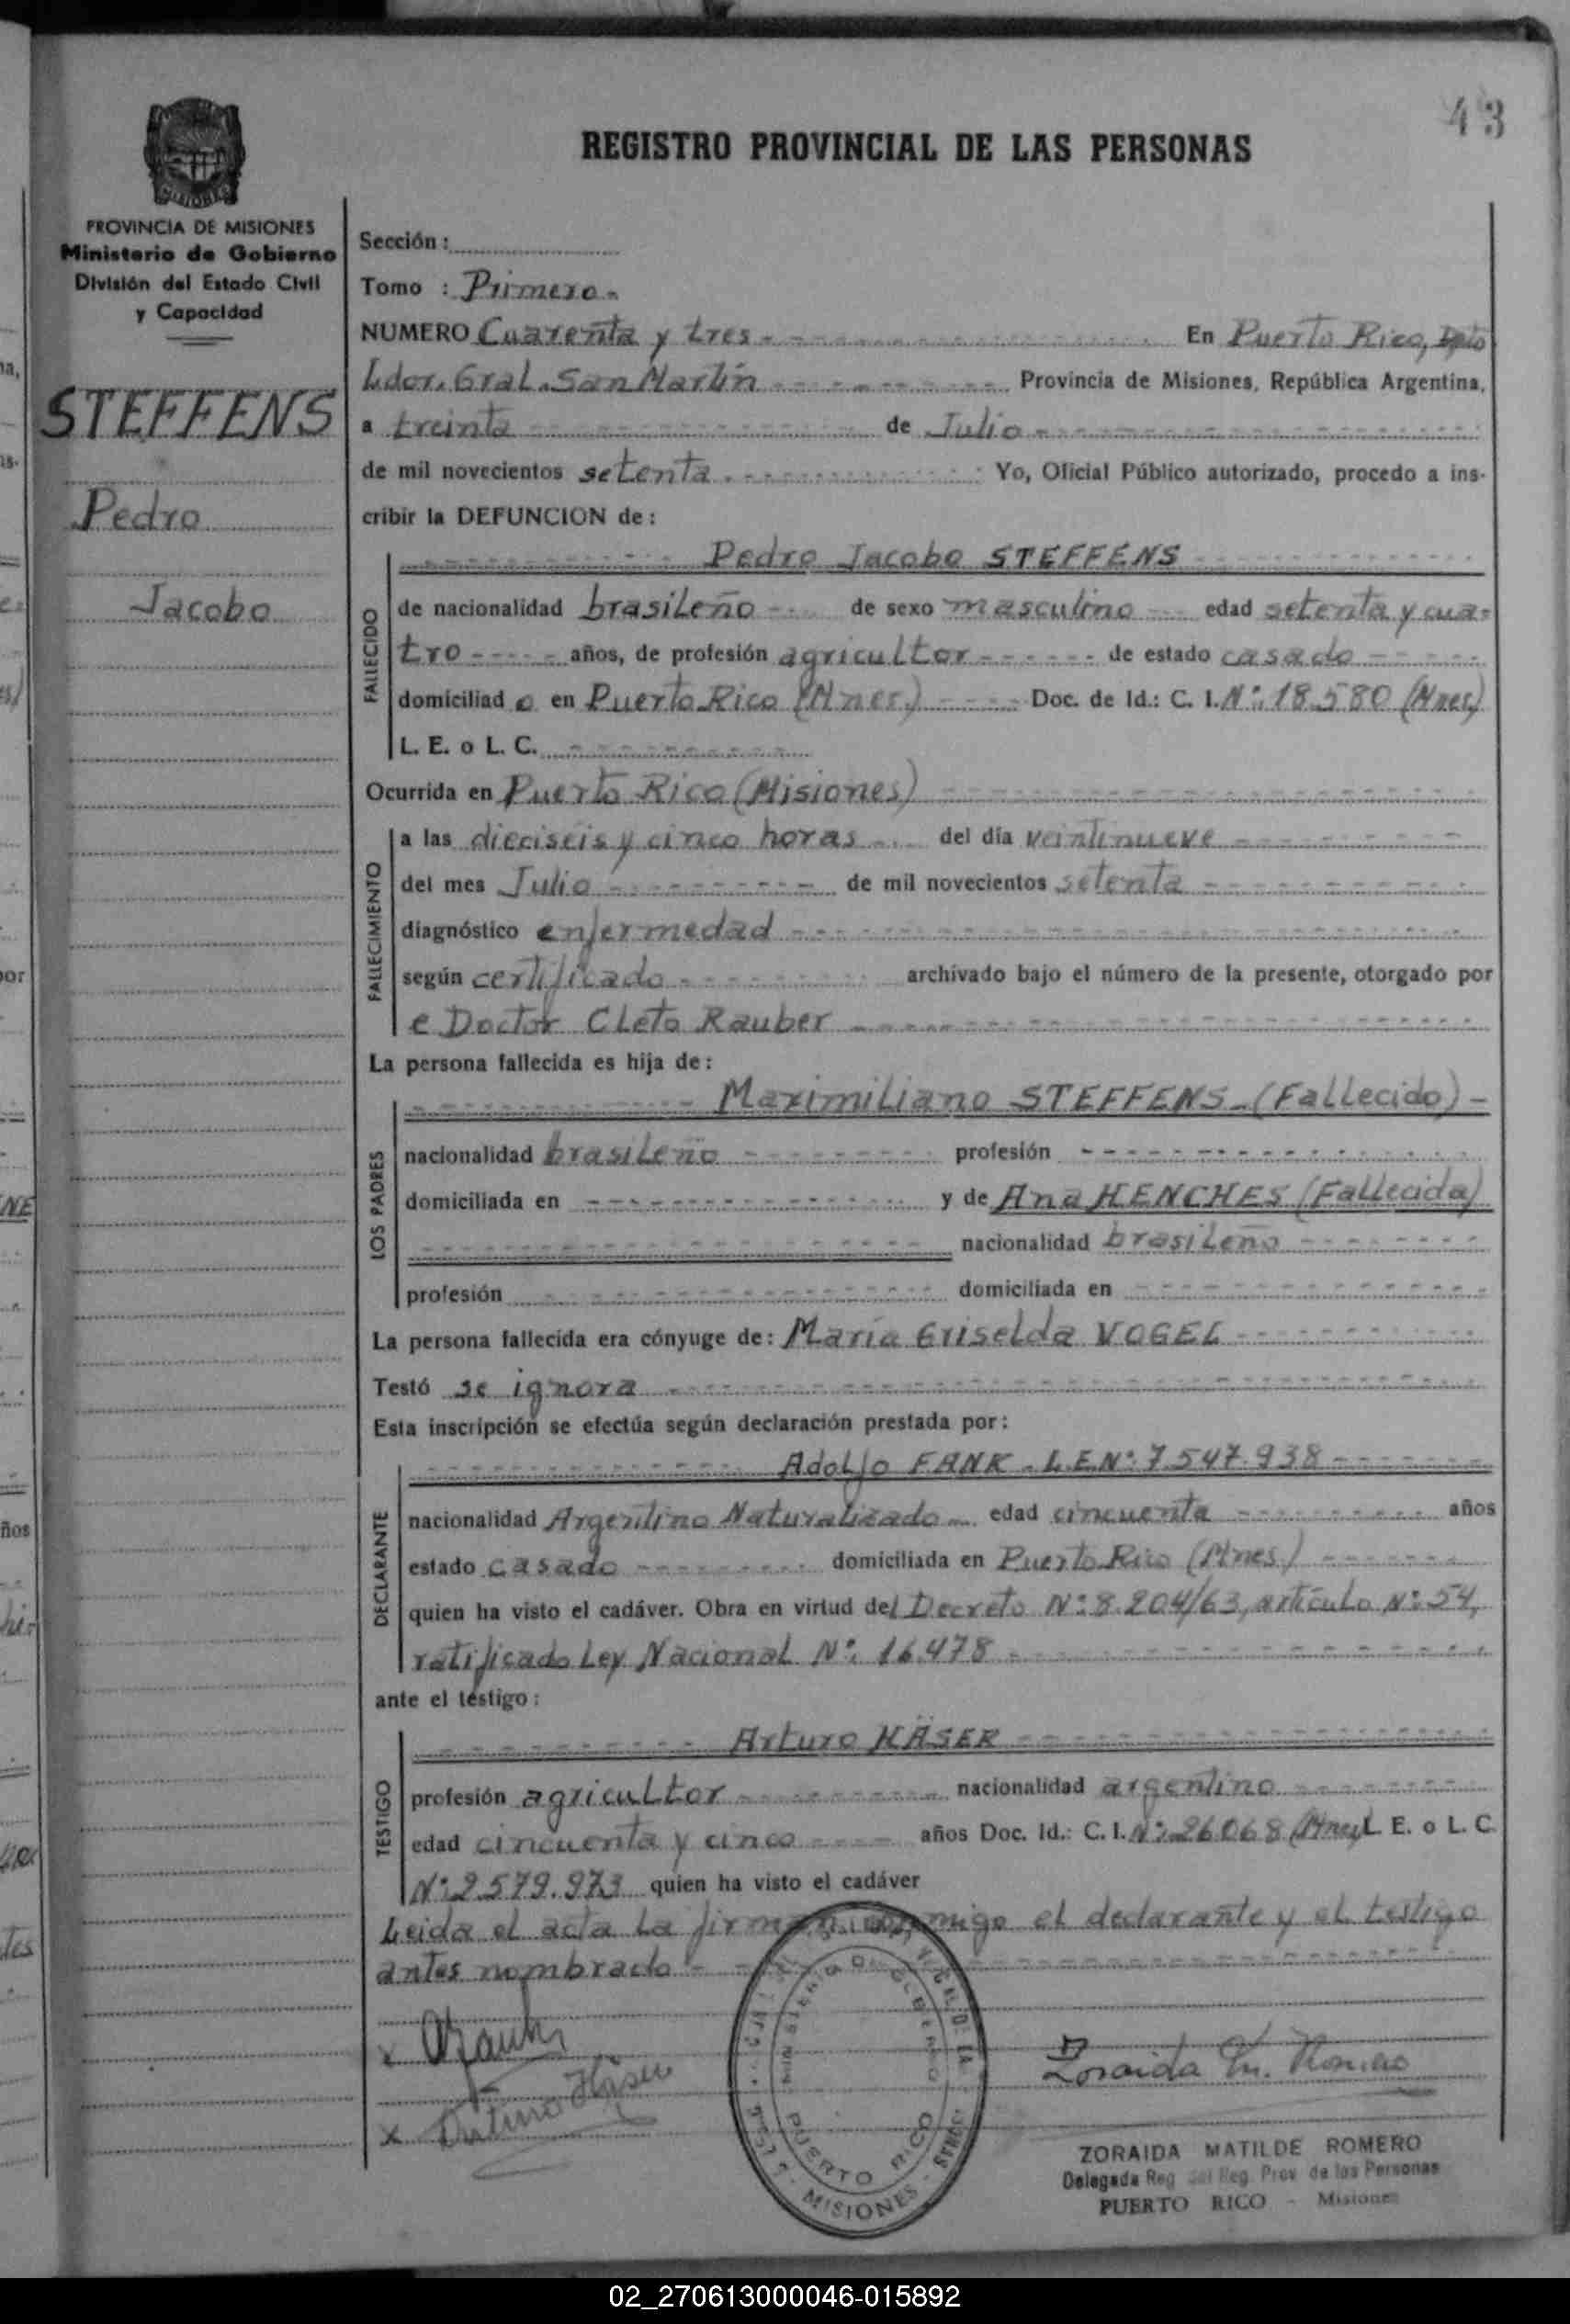 43
REGISTRO PROVINCIAL DE LAS PERSONAS
MISIONES
PROVINCIA DE MISIONES
Ministerio de Gobierno
División del Estado Civil
y Capacidad
STEFFENS
Pedro
Jacobo
Sección:
Tomo : Primero.
NUMERO Cuarenta y tres En Puerto Rico, Dpto
Ldor. Gral. San Martín Provincia de Misiones, República Argentina,
a treinta de Julio
de mil novecientos setenta Yo, Oficial Público autorizado, procedo a ins-
cribir la DEFUNCION de:
Pedro Jacobo STEFFENS
FALLECIDO
de nacionalidad brasileño de sexo masculino edad setenta y cua-
tro años, de profesión agricultor de estado casado
domiciliad o en Puerto Rico (Mnes.) Doc. de Id.: C. I. Nº: 18.580 (Mnes)
L. E. o L. C.
Ocurrida en Puerto Rico (Misiones)
FALLECIMIENTO
a las dieciseis y cinco horas del día veintinueve
del mes Julio de mil novecientos setenta
diagnóstico enfermedad
según certificado archivado bajo el número de la presente, otorgado por
e Doctor Cleto Rauber
La persona fallecida es hija de:
Maximiliano STEFFENS - (Fallecido) -
LOS PADRES
nacionalidad brasileño profesión
domiciliada en y de Ana HENCHES (Fallecida)
nacionalidad brasileño
profesión domiciliada en
La persona fallecida era cónyuge de: María Griselda VOGEL
Testó se ignora
Esta inscripción se efectúa según declaración prestada por:
Adolfo FANK - L.E.Nº: 7.547.938
DECLARANTE
nacionalidad Argentino Naturalizado edad cincuenta años
estado casado domiciliada en Puerto Rico (Mnes)
quien ha visto el cadáver. Obra en virtud del Decreto Nº: 8.204/63, artículo Nº: 54,
ratificado Ley Nacional Nº: 16.478
ante el testigo:
Arturo HÄSER
TESTIGO
profesión agricultor nacionalidad argentino
edad cincuenta y cinco años Doc. Id.: C. I. Nº: 26.068 (Mnes) L. E. o L. C.
Nº: 2.579.973 quien ha visto el cadáver
Leida el acta la firman conmigo el declarante y el testigo
antes nombrado
x AFank
x Arturo Häser
Zoraida M. Romero
MINISTERIO DE GOBIERNO
PUERTO RICO
MISIONES
ZORAIDA MATILDE ROMERO
Delegada Reg. del Reg. Prov. de las Personas
PUERTO RICO - Misiones
02_270613000046-015892